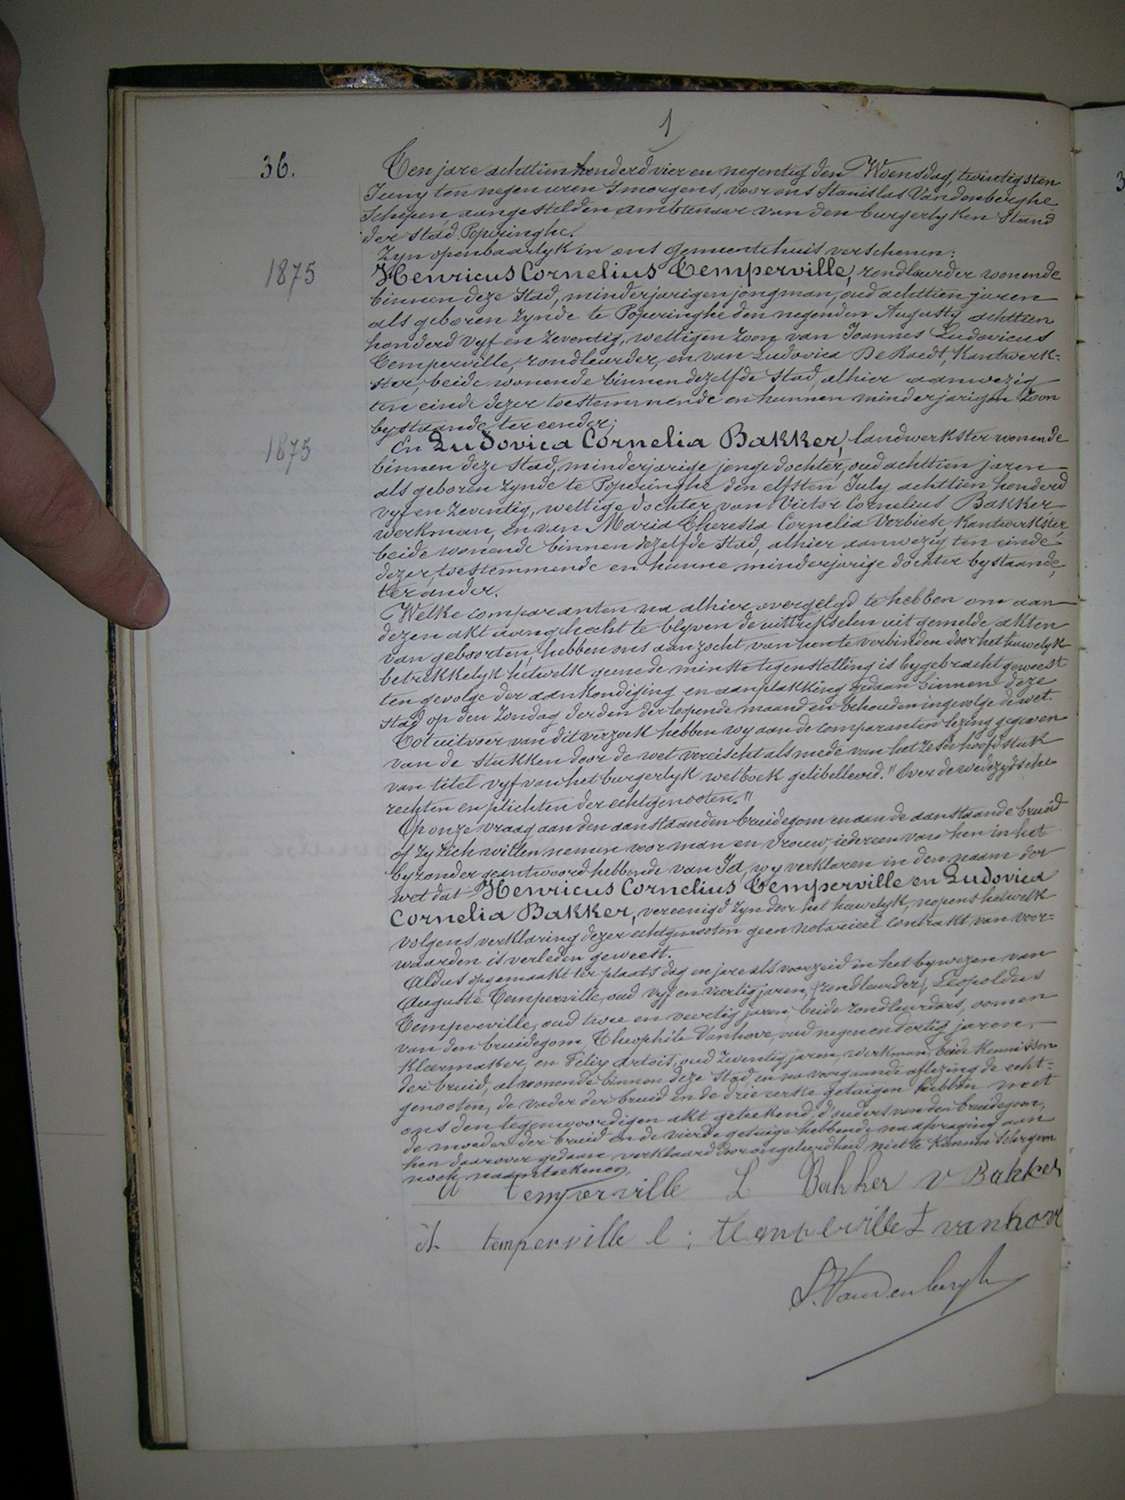 1
36.
Ten jare achttien honderd vier en negentig den Woensdag, twintigsten
Juny ten negen uren s'morgens, voor ons Stanislas Vandenberghe
Schepen aangestelden ambtenaar van den burgerlyken Stand
der stad Poperinghe.
Zyn openbaarlyk in ons gemeentehuis verschenen:
1875
Henricus Cornelius Temperville, rondleurder wonende
binnen deze Stad, minderjarigen jongman, oud achttien jaren
als geboren zynde te Poperinghe den negenden Augusty achttien
honderd vyf en zeventig, wettigen zoon van Joannes Ludovicus
Temperville, rondleurder, en van Ludovica De Raedt, Kantwerk-
ster, beide wonende binnen dezelfde Stad, alhier aanwezig
ten einde dezer toestemmende en hunnen minderjarigen Zoon
bystaande, ter eender;
1875
En Ludovica Cornelia Bakker, landwerkster wonende
binnen deze Stad, minderjarige jonge dochter, oud achttien jaren
als geboren zynde te Poperinghe den elfsten July achttien honderd
vyf en zeventig, wettige dochter van Victor Cornelius Bakker
werkman, en van Maria Theresia Cornelia Verbiese, Kantwerkster,
beide wonende binnen dezelfde Stad, alhier aanwezig ten einde
dezer, toestemmende en hunne minderjarige dochter bystaande,
ter ander.
Welke comparanten na alhier overgelegd te hebben om aan
dezen akt aangehecht te blyven de uittrekselen uit gemelde akten
van geboorten, hebben ons aanzocht van hen te verbinden door het huwelyk
betrekkelyk hetwelk geene de minste tegenstelling is bygebracht geweest
ten gevolge der aankondiging en aanplakking gedaan binnen deze
stad op den Zondag, derden der loopende maand en behouden ingevolge de wet.
Tot uitvoer van dit verzoek hebben wy aan de comparanten lezing gegeven
van de stukken door de wet vereischt alsmede van het zesde hoofdstuk
van titel vyf van het burgerlyk wetboek gelibelleerd: "Over de wederzydsche
rechten en plichten der echtgenooten."
Op onze vraag aan den aanstaanden bruidegom en aan de aanstaande bruid
of zy zich willen nemen voor man en vrouw, iedereen van hen in het
byzonder geantwoord hebbende van Ja, wy verklaren in den naam der
wet dat Henricus Cornelius Temperville en Ludovica
Cornelia Bakker, vereenigd zyn door het huwelyk, nopens hetwelk
volgens verklaring dezer echtgenooten geen notarieel contrakt van voor-
waarden is verleden geweest.
Aldus opgemaakt ter plaats dag en jare als voorzeid in het bywezen van
Auguste Temperville, oud vyf en veertig jaren, rondleurder, Leopoldus
Temperville, oud twee en veertig jaren, beide rondleurders, oomen
van den bruidegom, Theophile Vanhove, oud negenendertig jaren,
Kleermaker, en Felix Artois, oud zeventig jaren, werkman, beide Kennissen
der bruid, al wonende binnen deze Stad, en na voorgaande aflezing de echt-
genooten, de vader der bruid en de drie eerste getuigen hebben met
ons den tegenwoordigen akt geteekend, d'ouders van den bruidegom,
de moeder der bruid en de vierde getuige hebbende na afvraging aan
hen daarover gedaan verklaard door ongeleerdheid niet te kunnen schryven
noch naamteekenen.
Temperville L Bakker V Bakker
A. temperville l: temperville t vanhove
S. Vandenberghe